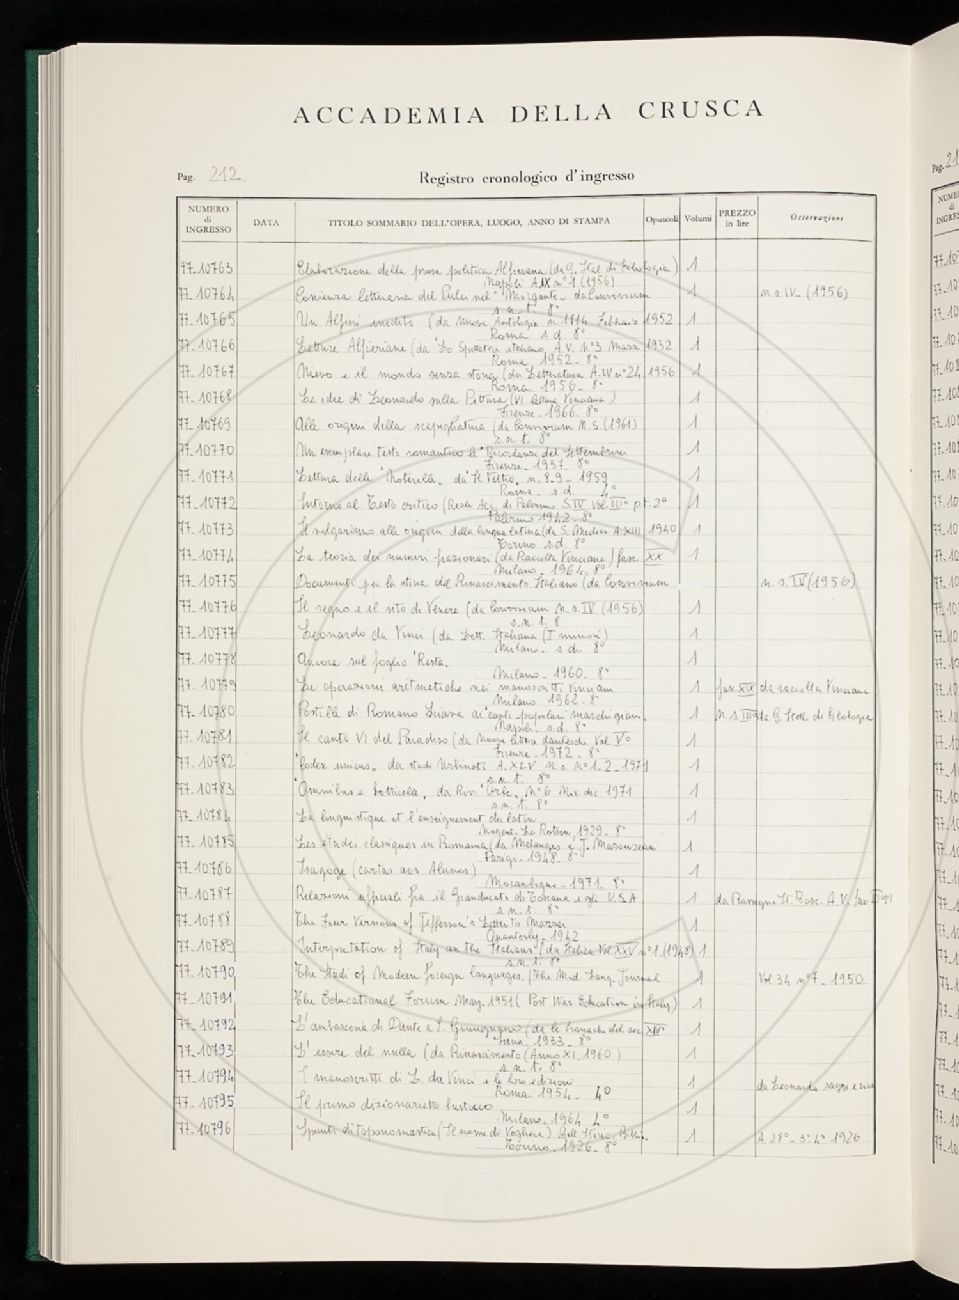 ACCADEMIA DELLA CRUSCA
Pag. 212
Registro cronologico d'ingresso
NUMERO di INGRESSO DATA TITOLO SOMMARIO DELL'OPERA, LUOGO, ANNO DI STAMPA Opuscoli Volumi PREZZO in lire Osservazioni
77-10763 Elaborazione della prosa politica Alfieriana (da G. Stor. di Filologia) 1
Napoli A.IX n° 1 (1956)
77-10764 letteraria del Pulci nel "Morgante" da Convivium 1 n.s. IV (1956)
s.n.t. 8°
77-10765 Un Alfieri inedito (da Nuova Antologia n. 1814 Febbraio 1952 1
Roma s.d. 8°
77-10766 Letture Alfieriane (da Lo Spettatore italiano, A.V. n°3 Marzo 1952 1
Roma, 1952 - 8°
77-10767 Nievo e il mondo senza storia (da Letteratura A.IV n° 24 1956 1
Roma 1956 - 8°
77-10768 Le idee di Leonardo sulla Pittura (VI lettura Vinciana) 1
Firenze - 1966. 8°
77-10769 Alle origini della scapigliatura (da Convivium N.S (1961) 1
s.n.t. 8°
77-10770 Un esemplare testo romantico le "Ricordanze del Settembrini 1
Firenze - 1957. 8°
77-10771 Lettura della da "Il Veltro" n. 8-9 - 1959 1
Roma - s.d. 4°
77-10772 Intorno al Testo critico (Reale Acc. di Palermo S.IV Vol. III° pt. 2ª 1
Palermo 1942 - 8°
77-10773 Il volgarismo alle origini della lingua latina (da S. Medioev. A.XIII 1940 1
Torino s.d. 8°
77-10774 La teoria dei numeri frazionari (da Raccolta Vinciana) fasc. XX 1
Milano - 1964. 8°
77-10775 Documenti per la storia del Rinascimento Italiano (da Convivium n.s. IV (1956)
77-10776 Il regno e il sito di Venere (da Convivium n.s. IV (1956) 1
s.n.t. 8
77-10777 Leonardo da Vinci (da Lett. Italiana (I minori) 1
Milano - s.d. 8°
77-10778 Ancora sul foglio "Resta. 1
Milano - 1960. 8°
77-10779 Le operazioni aritmetiche nei manoscritti Vinciani 1 fasc. XIX da raccolta Vinciana
Milano 1962 - 8°
77-10780 Postilla di Romano ai canti popolari marchigiani. 1 n.s III da G. Ital. di Filologia
Napoli. s.d. 8°
77-10781 Il canto VI del Paradiso (da Nuove letture dantesche Vol. V° 1
Firenze - 1972. 8°
77-10782 "Codex unicus" da studi Urbinati A.XLV n.s. N° 1-2-1971 1
s.n.t. 8°
77-10783 "Omnibus e botticella" da Riv. n° 6 Nov. dic 1971 1
s.n.t. 8°
77-10784 La linguistique et l'enseignement du latin 1
1929 - 8°
77-10785 Les études classiques in Romania (da Mélanges a J. Marouzeau 1
Parigi - 1948 - 8°
77-10786 Isagoge (cartas aos Alunos) 1
Mozambique - 1971. 8°
77-10787 Relazioni ufficiali fra il Granducato di Toscana e gli U.S.A 1 da Rassegna St. Tosc. A.V.
s.n.t. 8°
77-10788 The Four Versions of Jefferson's Letter to Mazzei 1
Quarterly - 1942
77-10789 Interpretation of Italy an the Italians (da Italica Vol. XXV n° 1 (1948) 1
s.n.t. 8°
77-10790 The Study of Modern Foreign languages. (The Mod. Lang. Journal 1 Vol 34 n° 7 - 1950
77-10791 The Educational Forum May. 1951 (Post War Education in Italy) 1
77-10792 L'ambasceria di Dante a S. Gimignano (da le del sec XIV° 1
Siena - 1933 - 8°
77-10793 L'essere del nulla (da Rinascimento (Anno XI, 1960) 1
s.n.t. 8°
77-10794 I manoscritti di L. da Vinci e le loro edizioni 1 da Leonardo saggi e
Roma 1954 - 4°
77-10795 Il primo dizionarietto bustocco 1
Milano - 1964 4°
77-10796 Spunti di Toponomastica (Il nome di Voghera) Boll. Storico Bibl. 1 A. 28° - 3° 4° 1926
Torino - 1926 - 8°